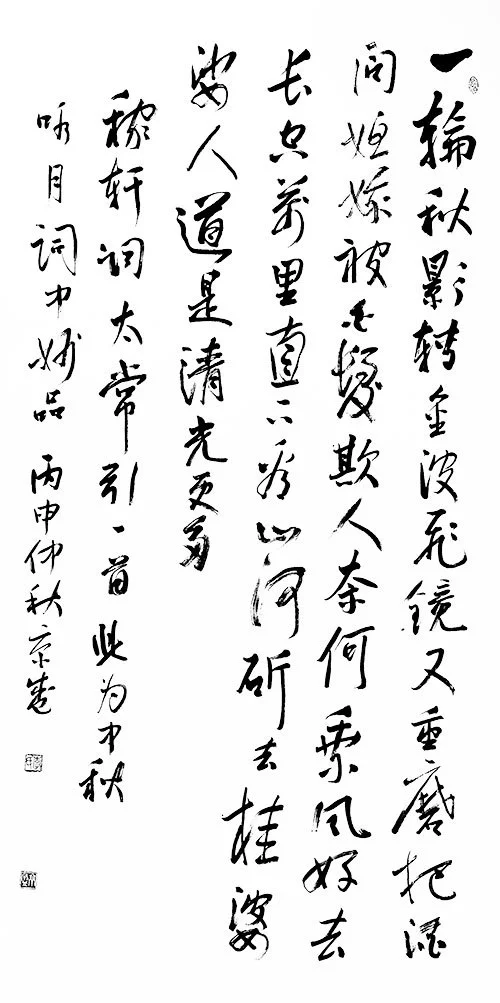 一輪秋影轉金波飛鏡又重磨把酒
問姮娥被白髮欺人奈何乘風好去
長空萬里直下看山河斫去桂婆
娑人道是清光更多
稼軒詞太常引一首此为中秋
咏月詞中妙品 丙申仲秋